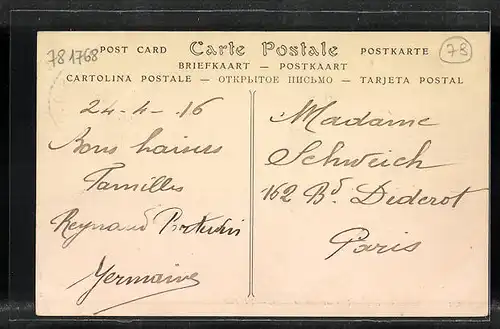 781768
POST CARD Carte Postale POSTKARTE
78
BRIEFKAART — POSTKAART
CARTOLINA POSTALE — ОТКРЫТОЕ ПИСЬМО — TARJETA POSTAL
24-4-16
Bons baisers
Familles
Reynaud
Germaine
Madame
Schweich
162 Bd. Diderot
Paris